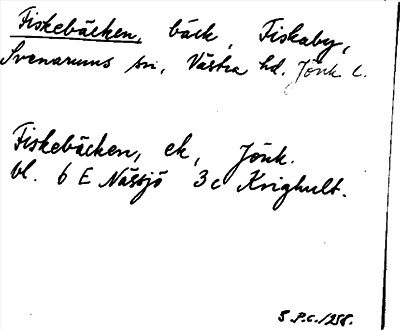 Fiskebäcken, bäck, Fiskaby,
Svenarums sn, Västra hd. Jönk L.
Fiskebäcken, ek, Jönk.
bl. 6 E Nässjö 3c Krighult.
S.P.C./258.